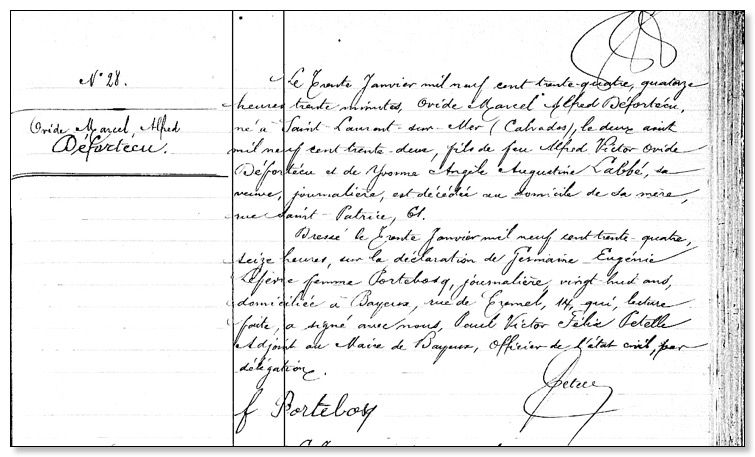 N° 28.
Ovide Marcel, Alfred
Défortecu.
Le Trente Janvier mil neuf cent trente-quatre, quatorze
heures trente minutes, Ovide Marcel Alfred Défortecu,
né à Saint-Laurent-sur-Mer (Calvados), le deux août
mil neuf cent trente-deux, fils de feu Alfred Victor Ovide
Défortecu et de Yvonne Angèle Augustine Labbé, sa
veuve, journalière, est décédée au domicile de sa mère,
rue Saint-Patrice, 61.
Dressé le Trente Janvier mil neuf cent trente-quatre,
seize heures, sur la déclaration de Germaine Eugénie
Lefèvre femme Portebosq, journalière, vingt huit ans,
domiciliée à Bayeux, rue de 14, qui, lecture
faite, a signé avec nous, Paul Victor Félix Petelle
Adjoint au Maire de Bayeux, Officier de l'état civil, par
délégation.
f Portebosq